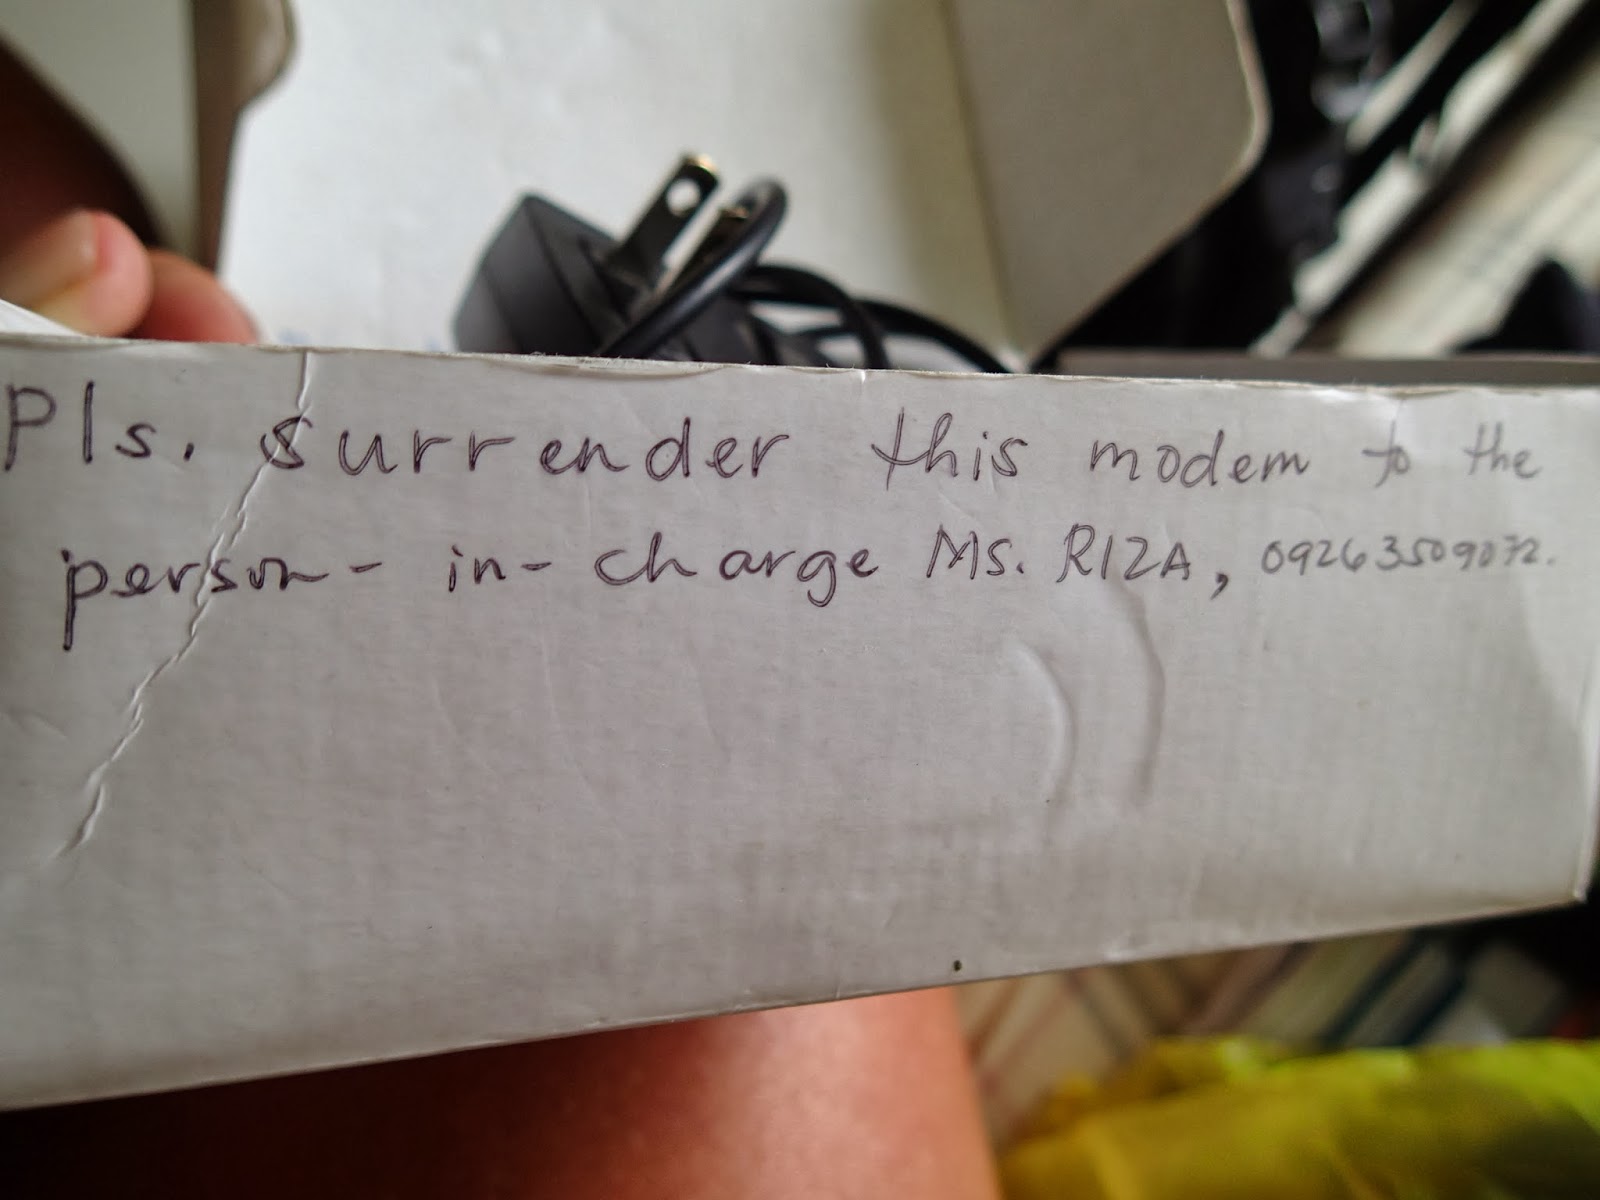 Pls. surrender this modem to the
person-in-charge Ms. RIZA, 09263509072.